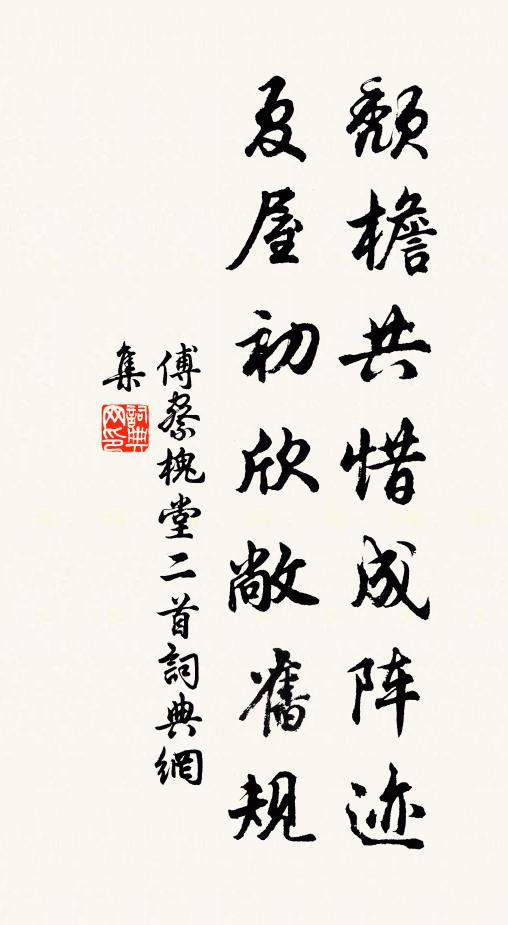 颓檐共惜成阵迹
夏屋初欣敞舊规
傅察槐堂二首詞典網
集
詞典网印